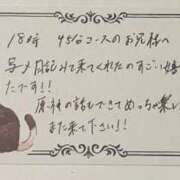 18時 45分コースのお兄様へ
写メ日記みて来てくれたのすごい嬉しかった
たです!!
原神の話もできてめっちゃ楽し
また来て下さい!!